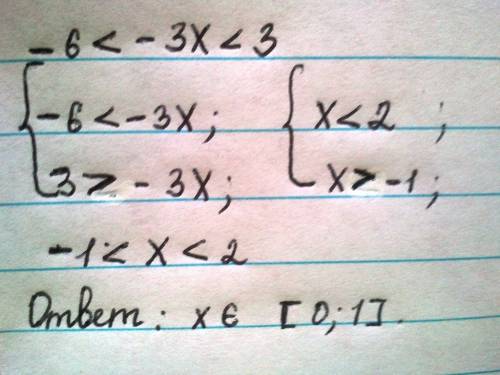 -6 < -3x < 3
{ -6 < -3x; { x < 2 ;
3 > -3x; x > -1;
-1 < x < 2
Ответ: x ∈ [0; 1].